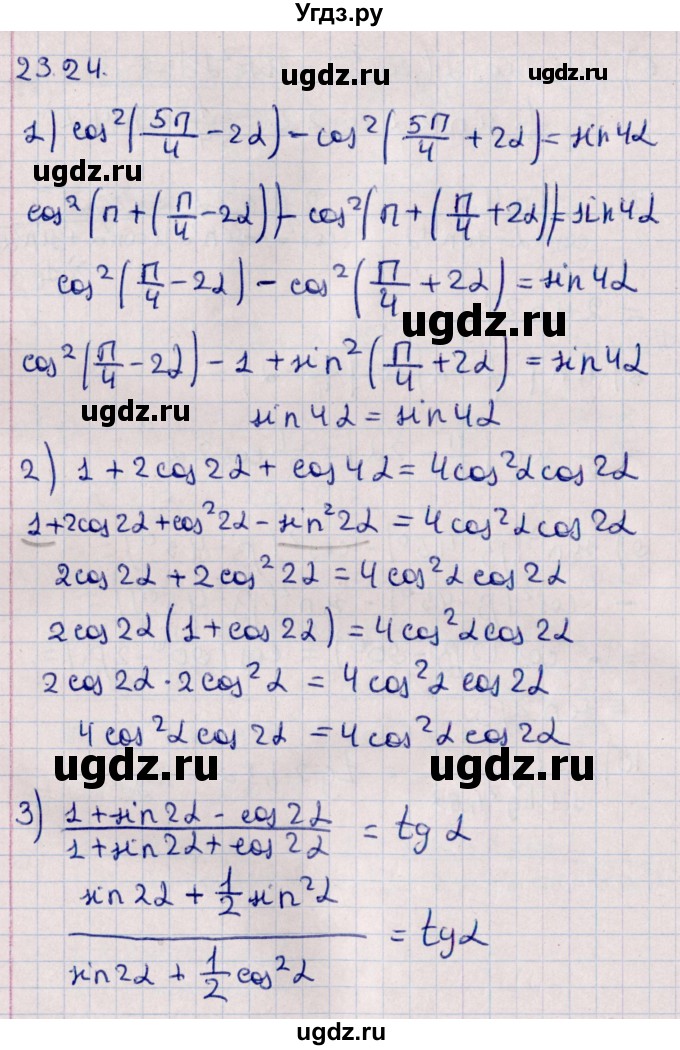 Угдз.ру
23.24.
ugdz.ru ugdz.ru
1) cos²(5π/4 − 2α) − cos²(5π/4 + 2α) = sin4α
ugdz.ru
cos²(π + (π/4 − 2α)) − cos²(π + (π/4 + 2α)) = sin4α
cos²(π/4 − 2α) − cos²(π/4 + 2α) = sin4α
ugdz.ru
cos²(π/4 − 2α) − 1 + sin²(π/4 + 2α) = sin4α
ugdz.ru
sin4α = sin4α
2) 1 + 2cos2α + cos4α = 4cos²α cos2α
ugdz.ru ugdz.ru
1 + 2cos2α + cos²2α − sin²2α = 4cos²α cos2α
2cos2α + 2cos²2α = 4cos²α cos2α
2cos2α(1 + cos2α) = 4cos²α cos2α
ugdz.ru ugdz.ru
2cos2α · 2cos²α = 4cos²α cos2α
4cos²α cos2α = 4cos²α cos2α
ugdz.ru ugdz.ru
3) (1 + sin2α − cos2α)/(1 + sin2α + cos2α) = tgα
(sin2α + 1/2 sin²α)/(sin2α + 1/2 cos²α) = tgα
ugdz.ru ugdz.ru
ugdz.ru